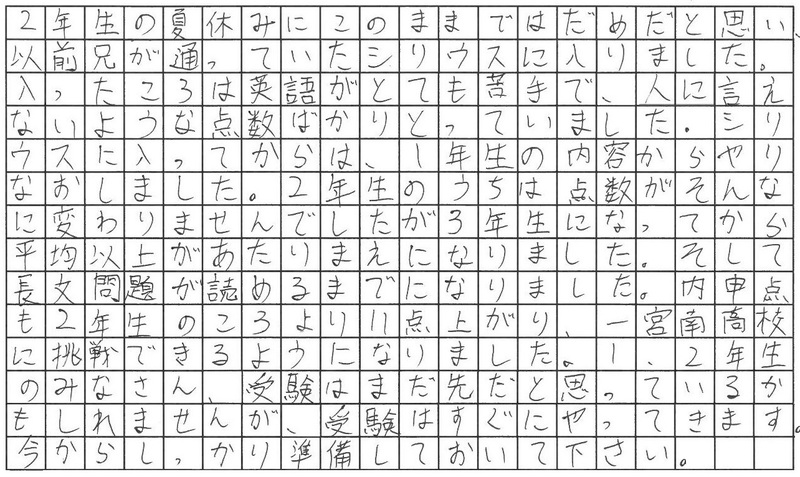 2年生の夏休みにこのままではだめだと思い、
以前兄が通っていたシリウスに入りました。
入ったころは英語がとても苦手で、人に言え
ないような点数ばかりとっていました。シリ
ウスに入ってからは、1年生の内容からやり
なおしました。2年生のうちは点数がそんな
に変わりませんでしたが3年生になってから
平均以上があたりまえになりました。そして
長文問題が読めるまでになりました。内申点
も2年生のころより11点上がり、一宮南高校
に挑戦できるようになりました。1、2年生
のみなさん、受験はまだ先だと思っているか
もしれませんが、受験はすぐにやってきます。
今からしっかり準備しておいて下さい。